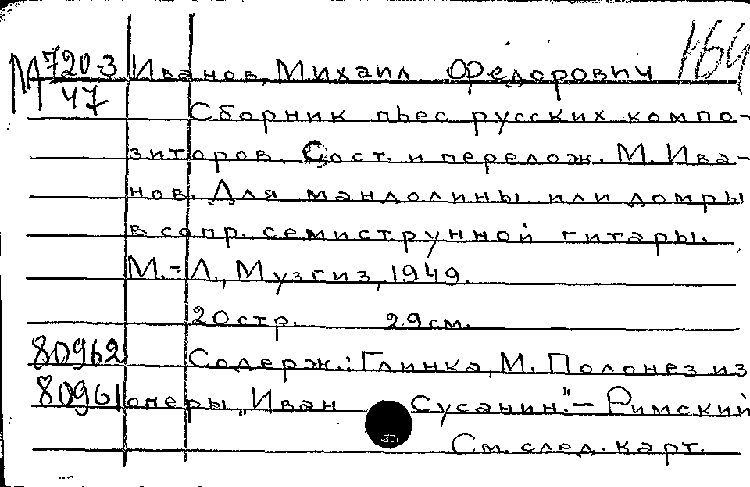 М 7203/47 Иванов, Михаил Федорович 164
Сборник пьес русских компо-
зиторов. Сост. и перелож. М. Ива-
нов. Для мандолины или домры
в сопр. семиструнной гитары.
М.-Л., Музгиз, 1949.
20 стр. 29 см.
80962 Содерж.: Глинка, М. Полонез из
80961 оперы „Иван Сусанин." — Римский
См. след. карт.